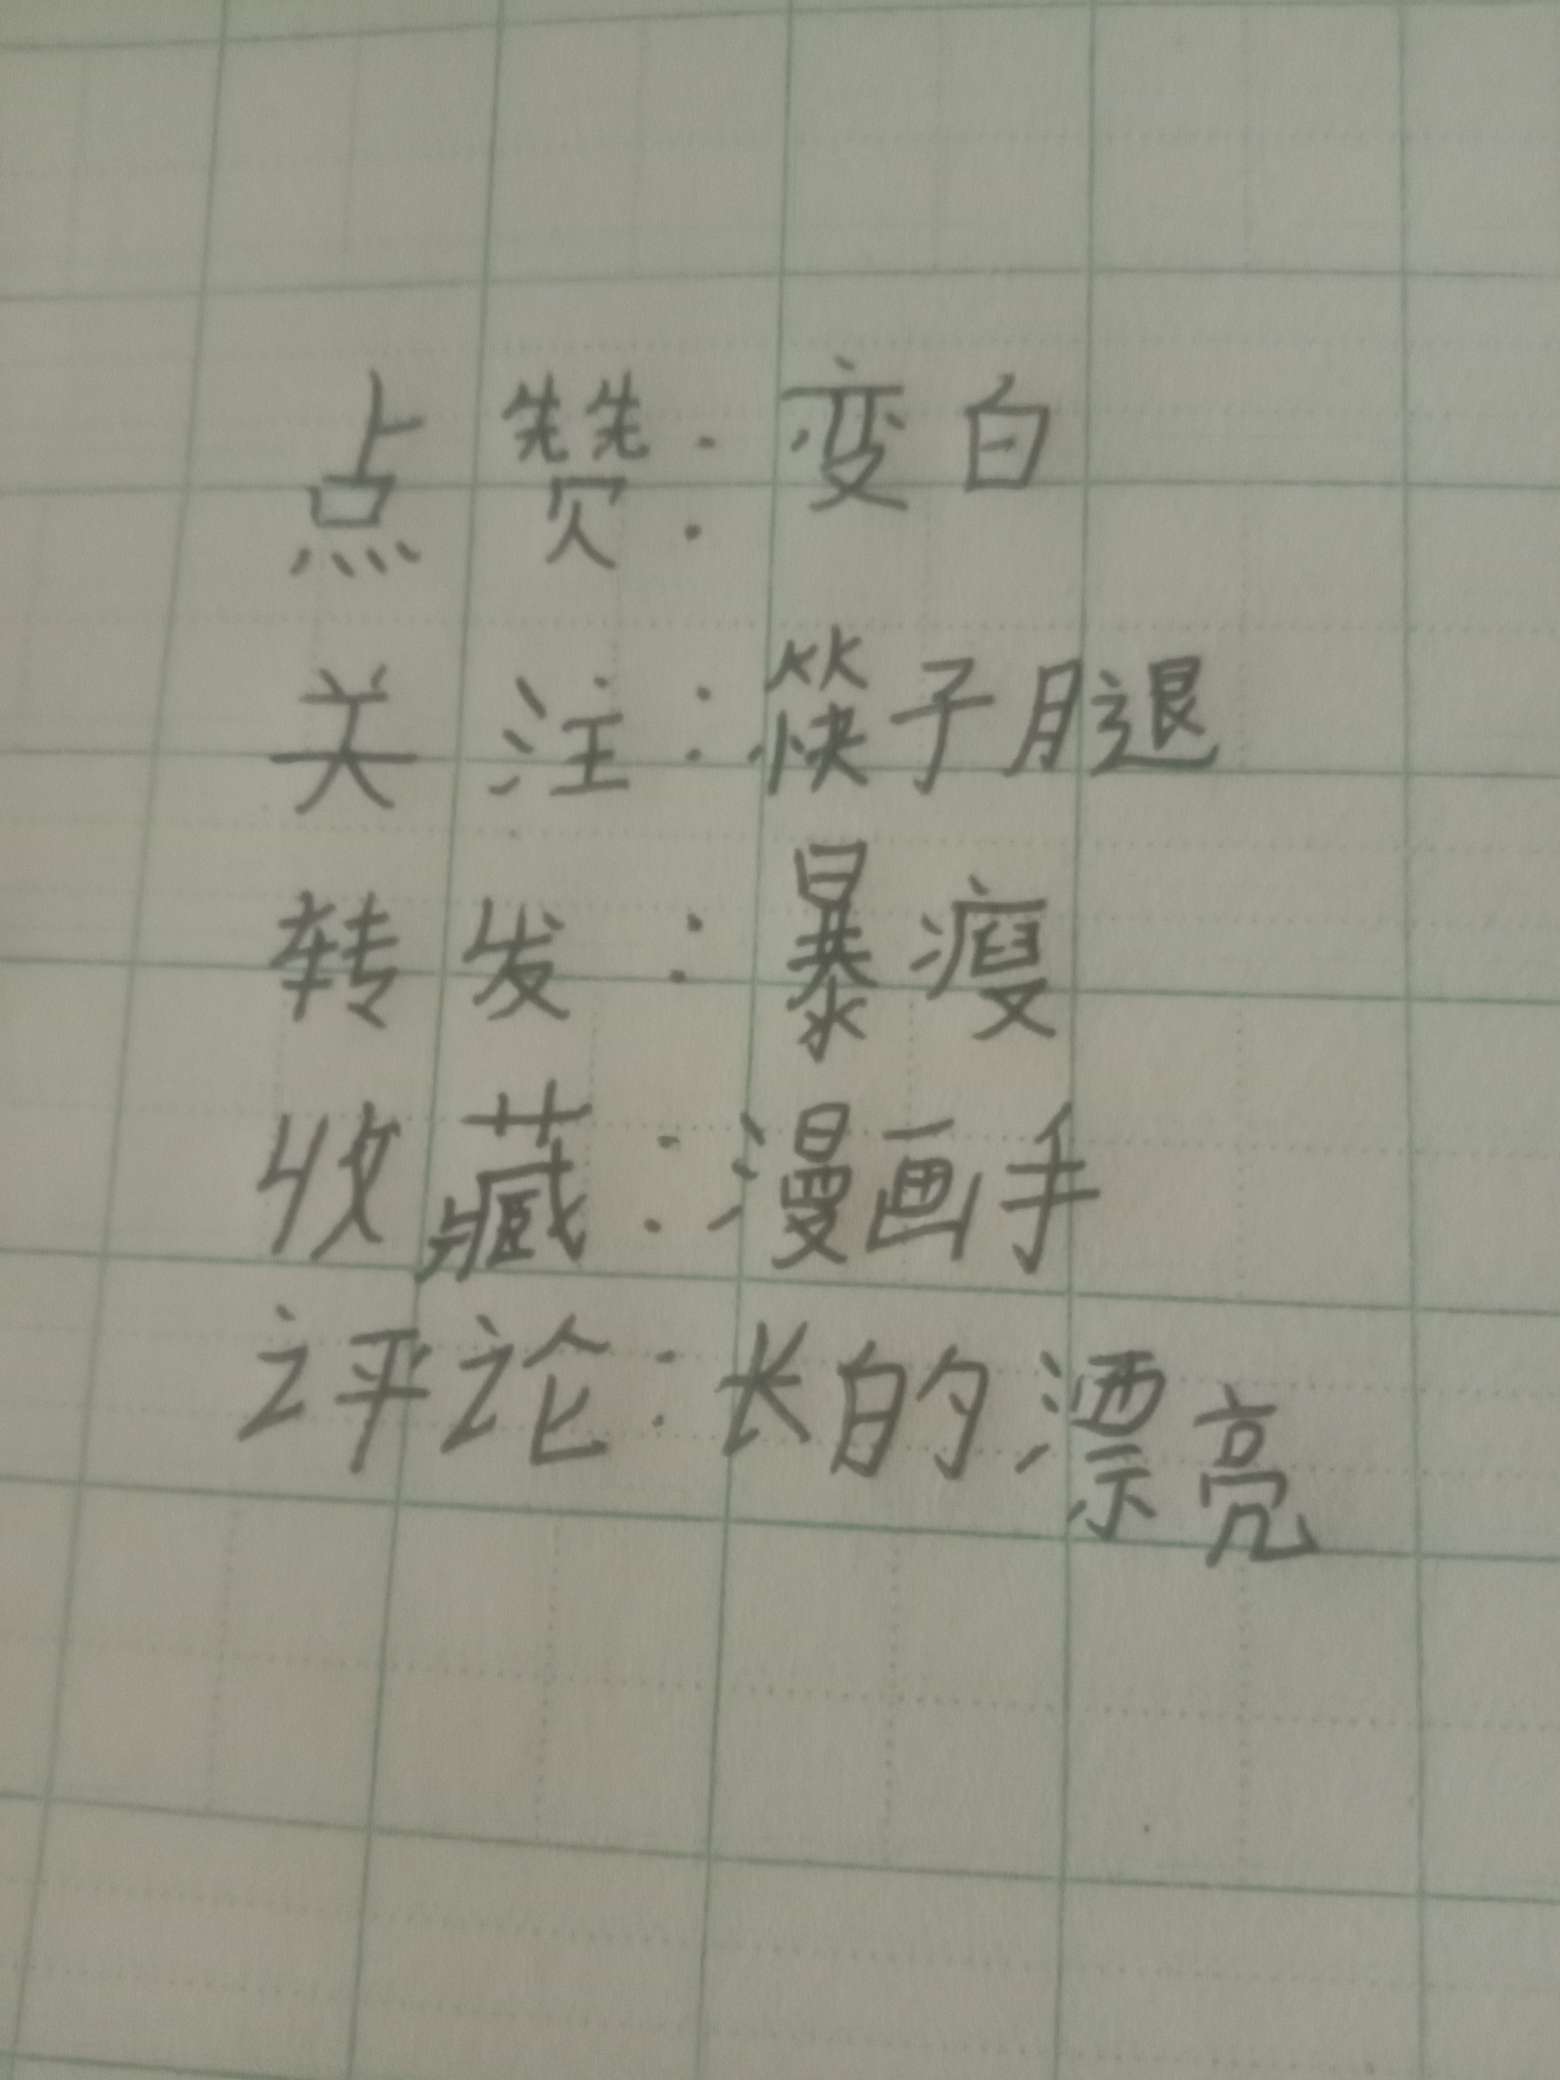 点赞：变白
关注：筷子腿
转发：暴瘦
收藏：漫画手
评论：长的漂亮